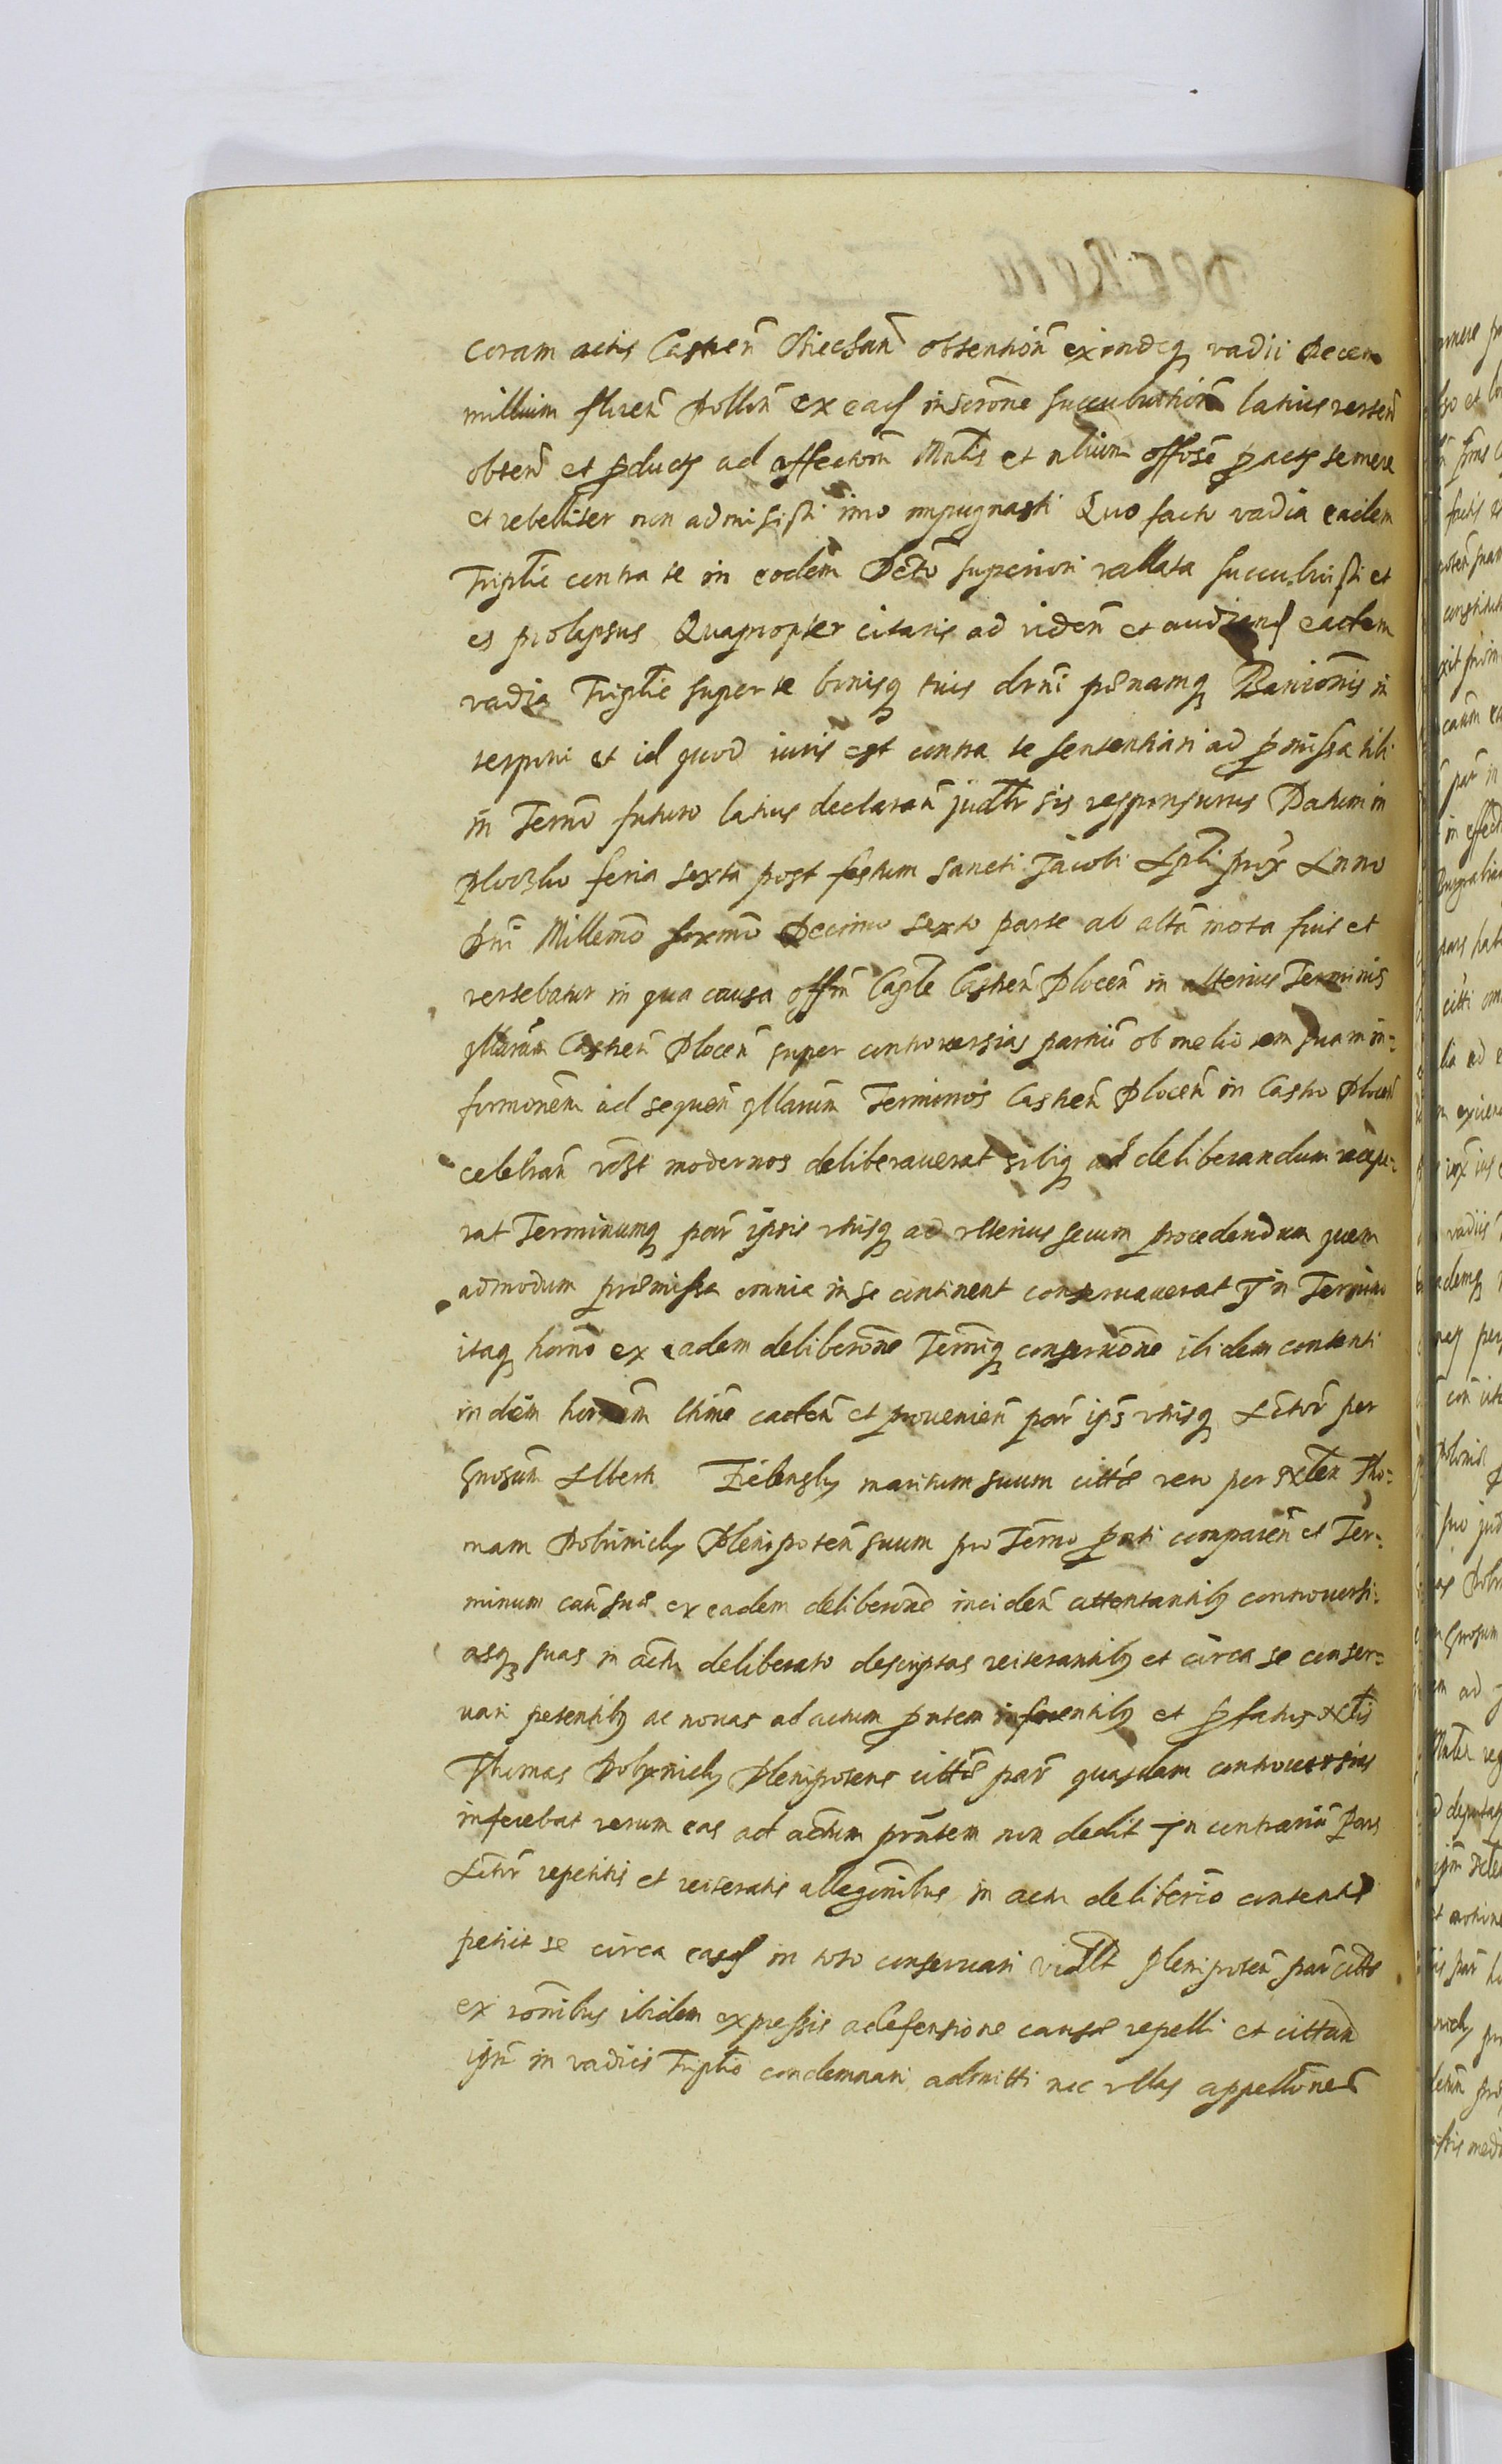 coram actis Castren obtention exindeq vadii Decem
millium floren Pollon ex eadʒ inscrone succubution latius versen
obten et pducts ad affectom Mntis et alium offose p acts temere
et rebelliter non admisisti imo impugnasti Quo facto vadia eadem
Triplic contra te in eodem Dcto superiori vallata succubuisti et
es prolapsus Quapropter citaris ad viden et audiend eadem
vadia Triplic super te bonisq tuis dcrni penamq Banionis in
terponi et id quod iuris est contra te sententiari ad pmissa tibi
in Termo futuro latius declaran judltr sis responsurus Datum in
Ploczko feria sexta post festum sancti Jacobi Apli prox Anno
Dni Millemo sexmo Decimo sexto parte ab altā mota fuit et
vertebatur in qua causa offm Caple Castren Plocen in Terminis
qllarum Castren Plocen super controversias partiū ob meliorem suam in-
formonem ad sequen qllarum Terminos Castren Plocen in Castro Plocen
celebran modernos deliberauerat sibiq ad deliberandum recepe-
rat Terminumq par ipsis vtrisq ad vlterius secum procedendum quem
admodum premissa omnia in se continent conseruauerat Jn Termino
itaq horno ex eadem deliberone Termiq conseruone ibidem contenti
indem hornum caden et prouenien par ips vtrisq Actor per
Gnosum Albert Zielensky maritum suum citte vero per Thо-
mam Dobrnicky Plenipoten suum pro Termo pnti comparen et Ter-
minum cau sue ex eadem deliberone inciden attentantibʒ controuersi-
asq suas in actu deliberato descriptas reiterantibʒ et circa se conser-
uari petentibʒ ac nouas ad actum pntem inferentibʒ et pfatus
Thomas Dobrnicky Plenipotens citte par quasdam controuersias
inferebat verum eas ad actum prntem non dedit Jn contrariū Pars
Actor repetitis et reiteratis allegonibus in actu deliberto contentis
petiit se circa easdʒ in toto conseruari vidlt plenipoten par citte
ex ronibus ibidem expressis a defensione cause repelli et cittam
ipm in vadiis Triplic condemnari admitti nec vllas appellones